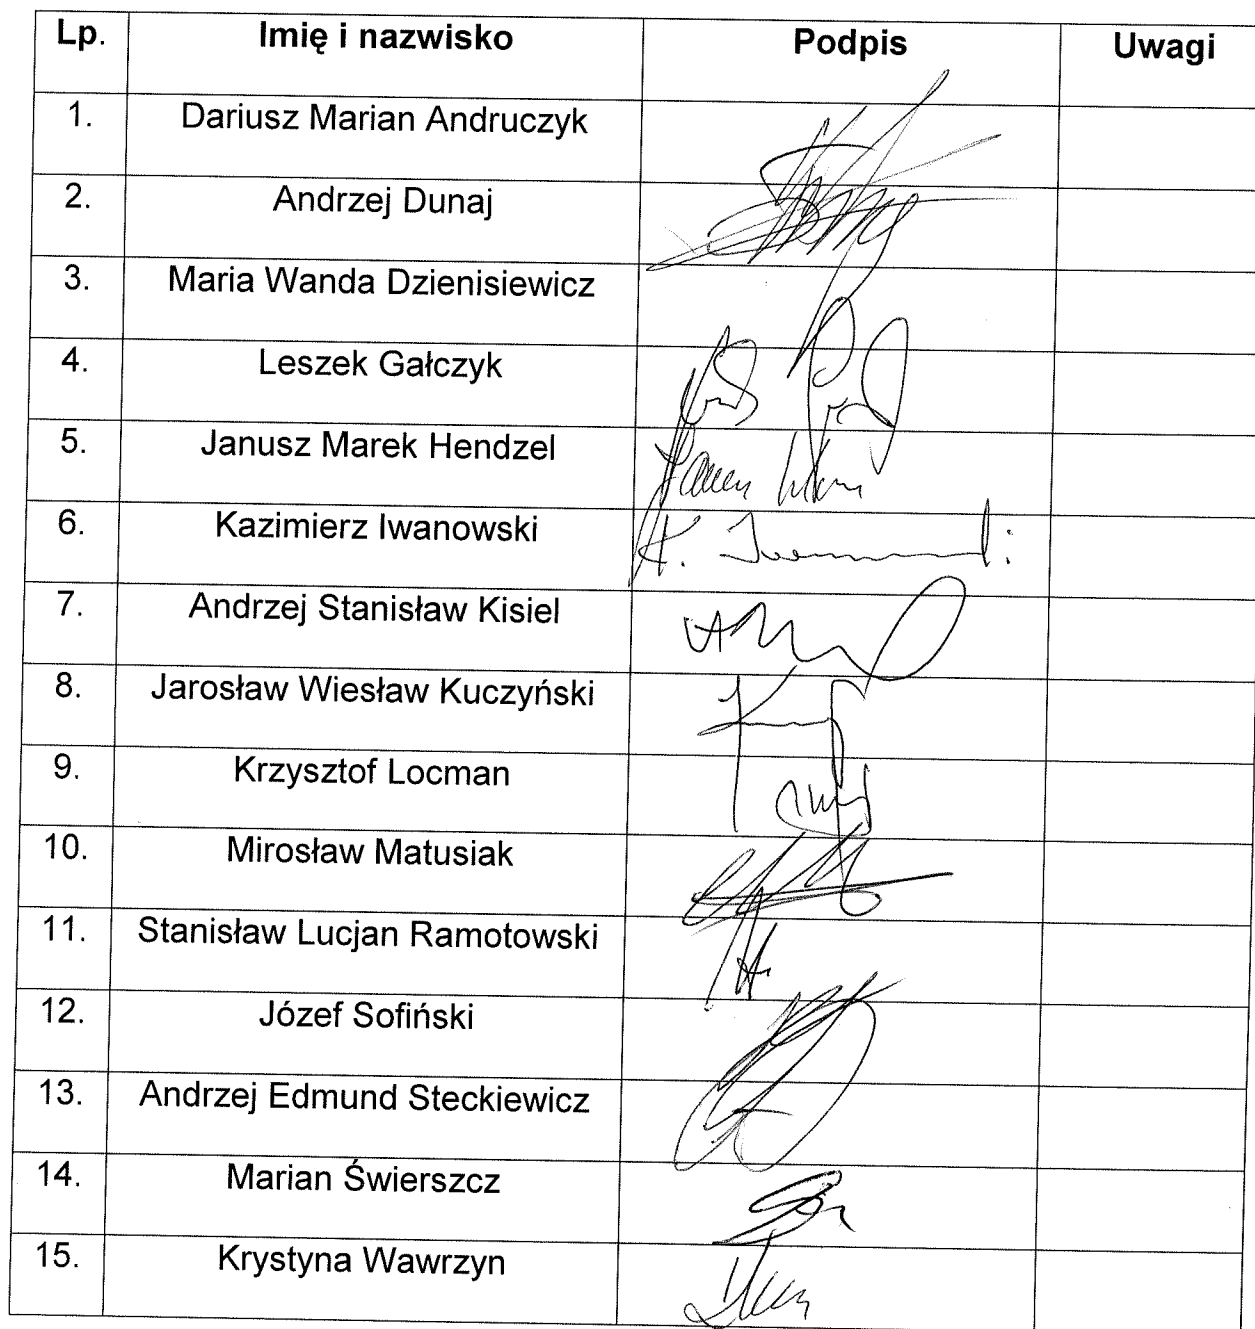 Lp. Imię i nazwisko Podpis Uwagi
1. Dariusz Marian Andruczyk
2. Andrzej Dunaj
3. Maria Wanda Dzienisiewicz
4. Leszek Gałczyk
5. Janusz Marek Hendzel
6. Kazimierz Iwanowski K.
7. Andrzej Stanisław Kisiel
8. Jarosław Wiesław Kuczyński
9. Krzysztof Locman
10. Mirosław Matusiak
11. Stanisław Lucjan Ramotowski
12. Józef Sofiński
13. Andrzej Edmund Steckiewicz
14. Marian Świerszcz
15. Krystyna Wawrzyn